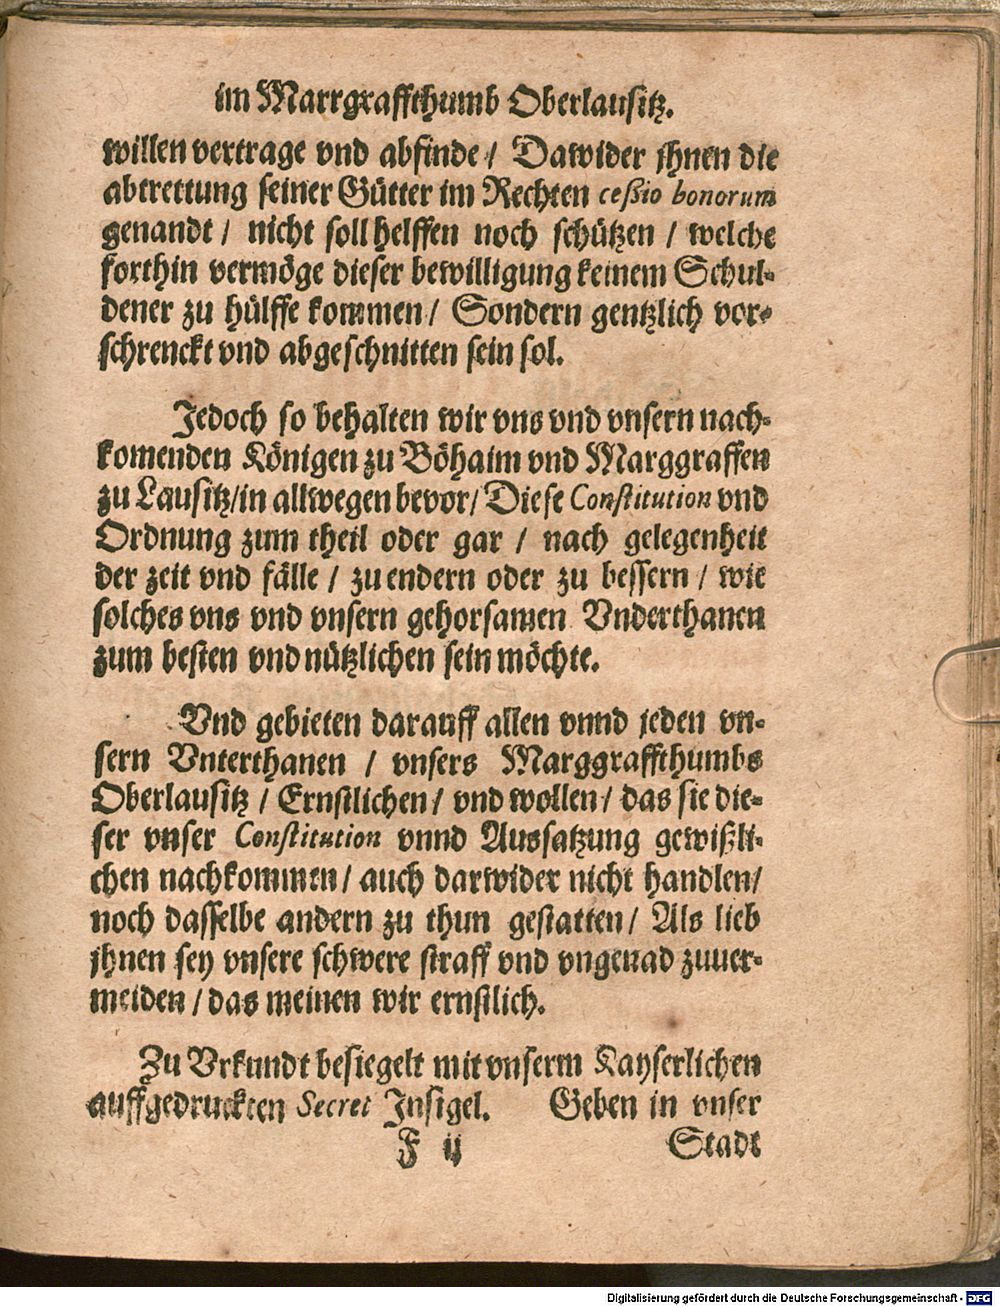 im Marrgraffthumb Oberlausitz.
willen vertrage vnd abfinde / Dawider jhnen die
abtrettung seiner Gütter im Rechten ceßio bonorum
genandt / nicht soll helffen noch schützen / welche
forthin vermöge dieser bewilligung keinem Schul-
dener zu hülffe kommen / Sondern gentzlich vor-
schrenckt vnd abgeschnitten sein sol.
Jedoch so behalten wir vns vnd vnsern nach-
komenden Königen zu Böhaim vnd Marggraffen
zu Lausitz/in allwegen bevor/ Diese Constitution vnd
Ordnung zum theil oder gar / nach gelegenheit
der zeit vnd fälle / zu endern oder zu bessern / wie
solches vns vnd vnsern gehorsamen Vnderthanen
zum besten vnd nützlichen sein möchte.
Vnd gebieten darauff allen vnnd jeden vn-
sern Vnterthanen / vnsers Marggraffthumbs
Oberlausitz / Ernstlichen / vnd wollen / das sie die-
ser vnser Constitution vnnd Aussatzung gewißli-
chen nachkommen / auch darwider nicht handlen/
noch dasselbe andern zu thun gestatten / Als lieb
jhnen sey vnsere schwere straff vnd vngenad zuuer-
meiden / das meinen wir ernstlich.
Zu Vrkundt besiegelt mit vnserm Kayserlichen
auffgedruckten Secret Insigel. Geben in vnser
F ij Stadt
Digitalisierung gefördert durch die Deutsche Forschungsgemeinschaft - DFG